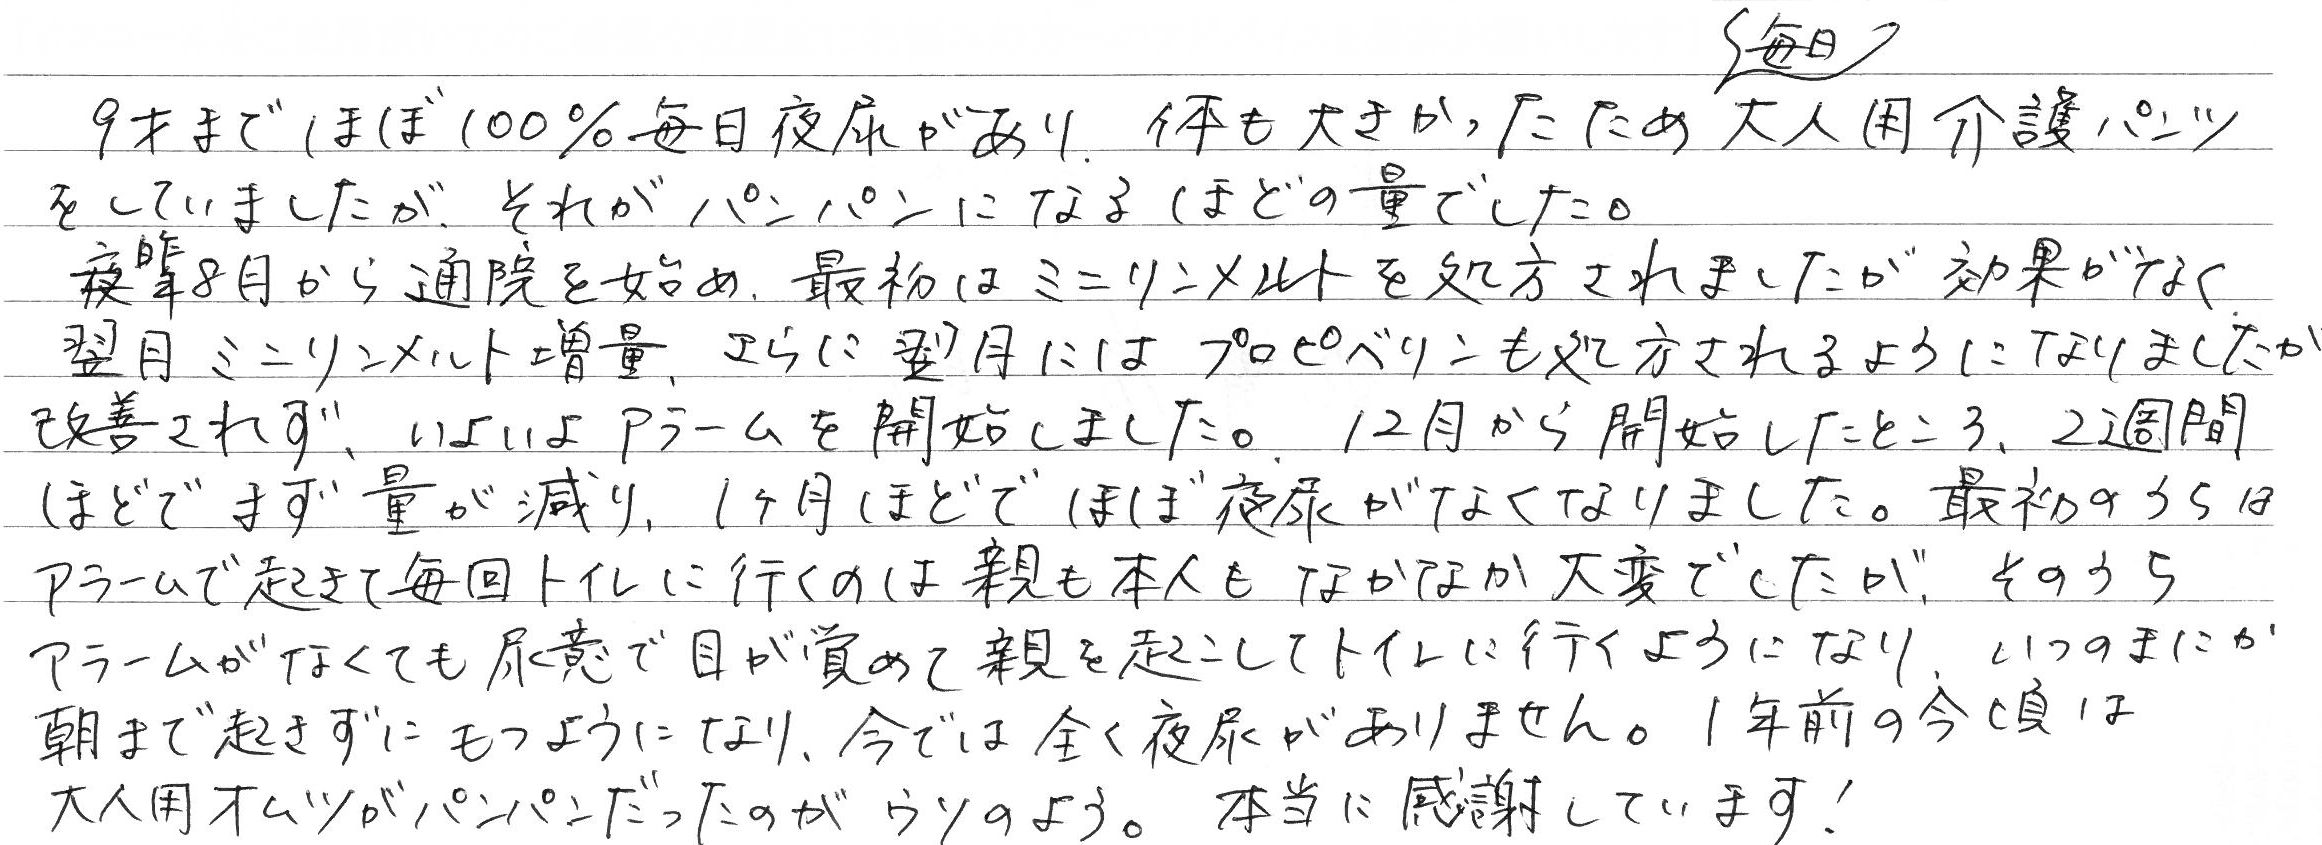 毎日
9才までほぼ100%毎日夜尿があり、体も大きかったため大人用介護パンツ
をしていましたが、それがパンパンになるほどの量でした。
昨年8月から通院を始め、最初はミニリンメルトを処方されましたが効果がなく、
翌月ミニリンメルト増量、さらに翌月にはプロピベリンも処方されるようになりましたが
改善されず、いよいよアラームを開始しました。12月から開始したところ、2週間
ほどでまず量が減り、1ヶ月ほどでほぼ夜尿がなくなりました。最初のうちは
アラームで起きて毎回トイレに行くのは親も本人もなかなか大変でしたが、そのうち
アラームがなくても尿意で目が覚めて親を起こしてトイレに行くようになり、いつのまにか
朝まで起きずにもつようになり、今では全く夜尿がありません。1年前の今頃は
大人用オムツがパンパンだったのがウソのよう。本当に感謝しています!